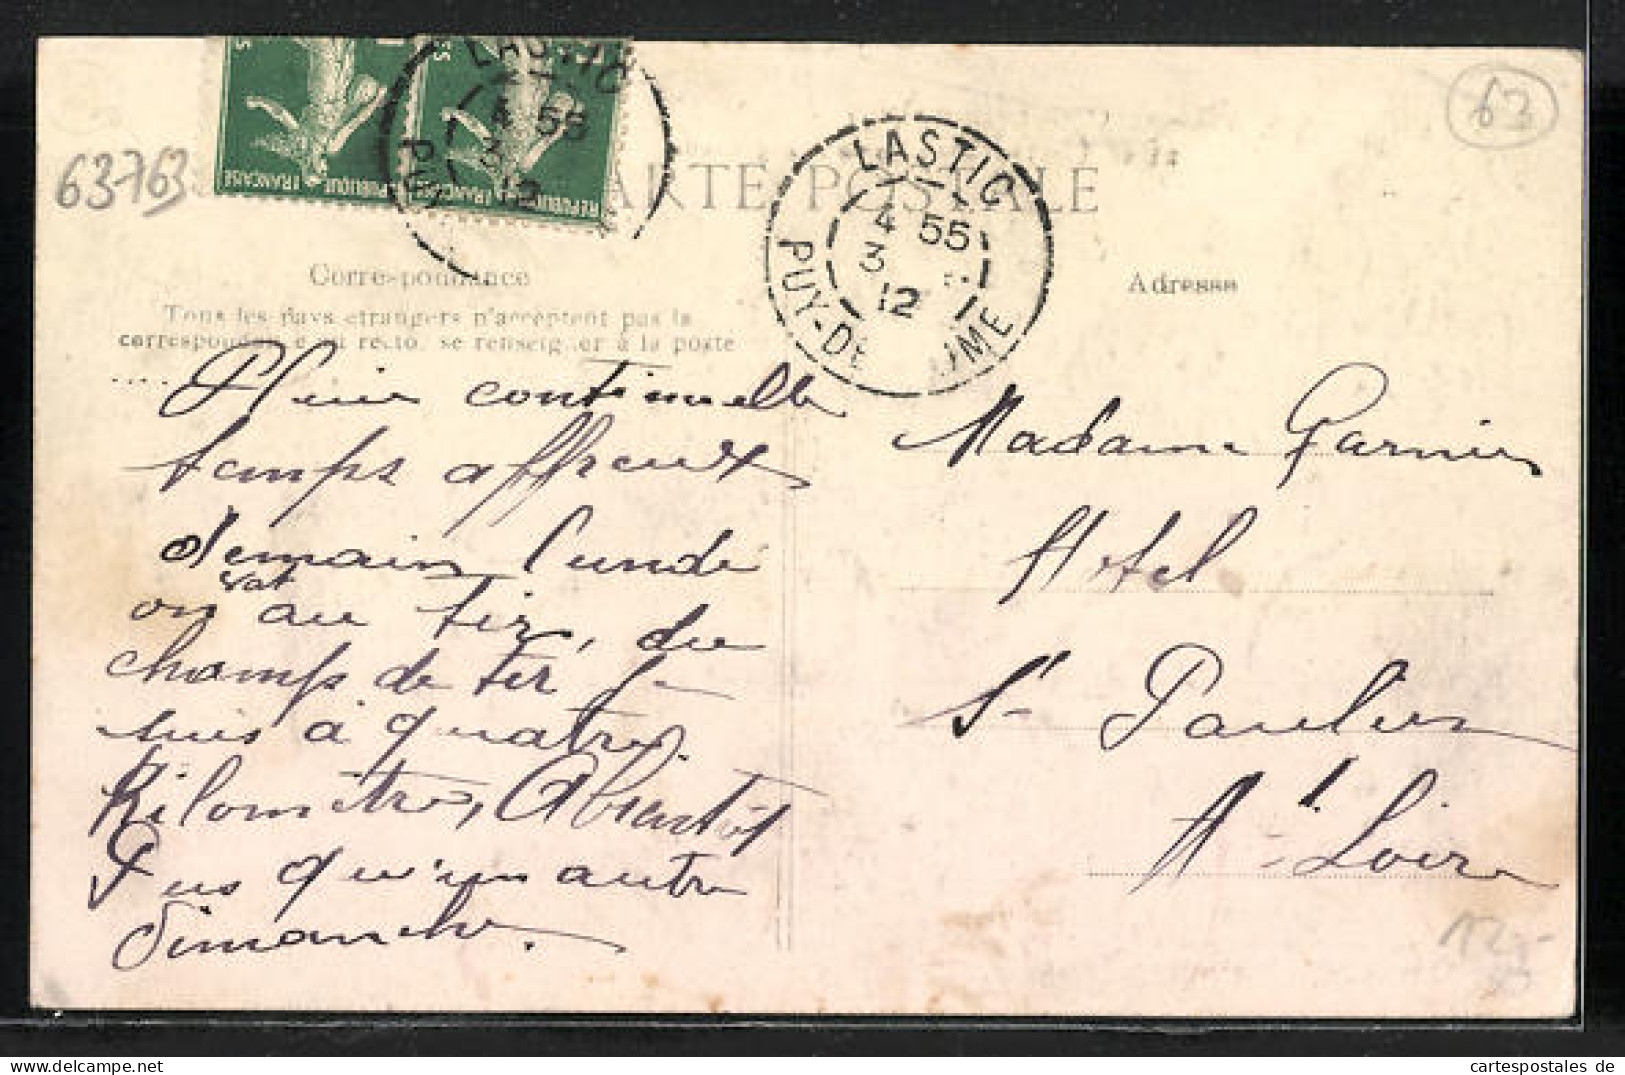 63763
63
RÉPUBLIQUE FRANÇAISE
RÉPUBLIQUE FRANÇAISE
LASTIC
4 55
3
12
PUY-DE
CARTE POSTALE
LASTIC
4 55
3
12
PUY-DE DOME
Correspondance
Adresse
Tous les pays etrangers n'acceptent pas la
correspondance au recto, se renseigner à la poste
Pluie continuelle
temps affreux
demain lundi
on vat au tir, du
champs de tir je
suis à quatre
Kilomètres, A bientôt
Pus qu'un autre
dimanche.
Madame Garnier
Hotel
St Paulien
Hte Loire
12,-
cartespostales de